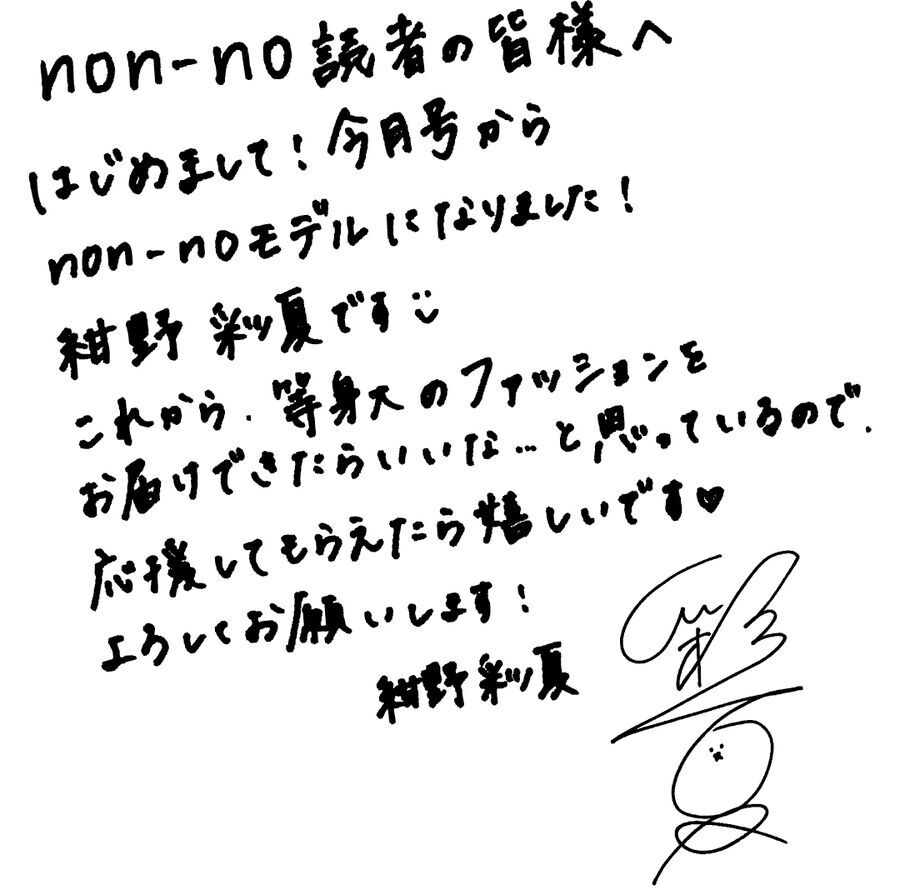 non-no読者の皆様へ
はじめまして！今月号から
non-noモデルになりました！
紺野 彩夏です
これから、等身大のファッションを
お届けできたらいいな…と思っているので、
応援してもらえたら嬉しいです♥
よろしくお願いします！
紺野彩夏
彩夏